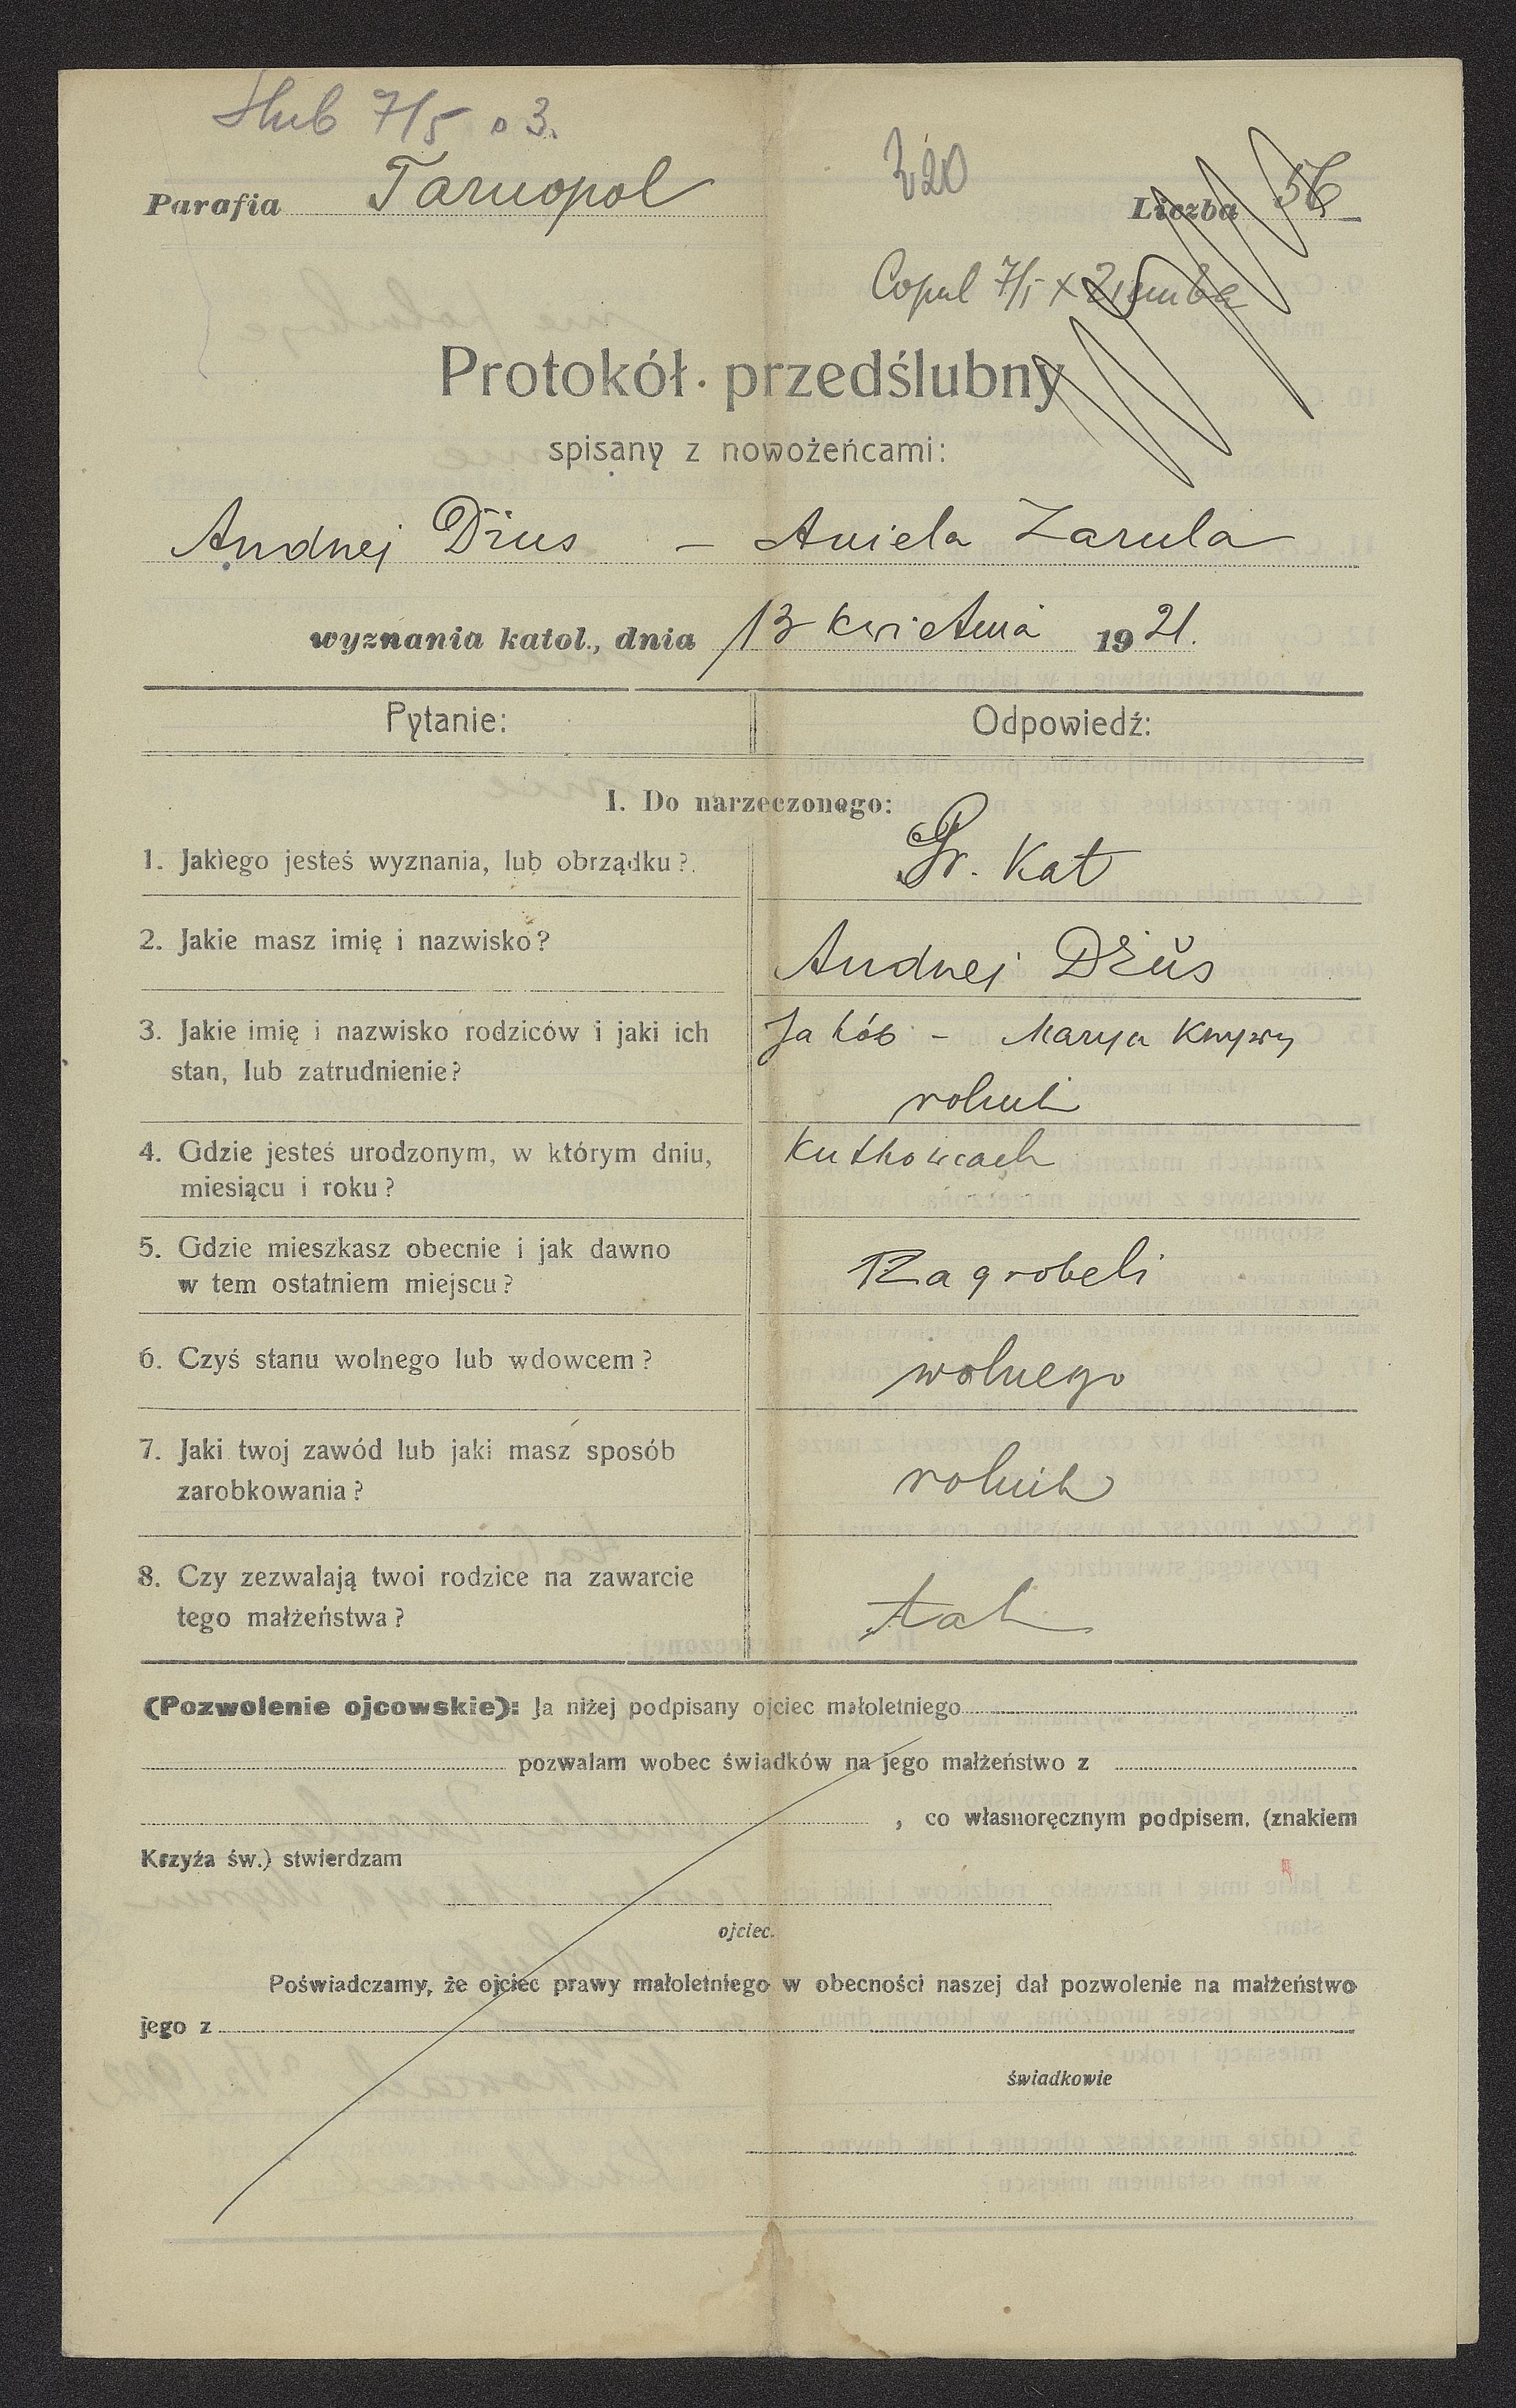 Ślub 7/5 o 3.
320
Parafia Tarnopol
Liczba 56
Copul 7/5 X Ziemba
Protokół przedślubny
spisany z nowożeńcami:
Andrzej Dżus – Aniela Zarula
wyznania katol., dnia 13 kwietnia 1921.
Pytanie:
Odpowiedź:
I. Do narzeczonego:
1. Jakiego jesteś wyznania, lub obrządku?
Gr. Kat
2. Jakie masz imię i nazwisko?
Andrzej Dżus
3. Jakie imię i nazwisko rodziców i jaki ich
stan, lub zatrudnienie?
Jakób – Marya
rolnik
4. Gdzie jesteś urodzonym, w którym dniu,
miesiącu i roku?
Kutkowcach
5. Gdzie mieszkasz obecnie i jak dawno
w tem ostatniem miejscu?
Zagrobeli
6. Czyś stanu wolnego lub wdowcem?
wolnego
7. Jaki twoj zawód lub jaki masz sposób
zarobkowania?
rolnik
8. Czy zezwalają twoi rodzice na zawarcie
tego małżeństwa?
tak
(Pozwolenie ojcowskie): Ja niżej podpisany ojciec małoletniego
pozwalam wobec świadków na jego małżeństwo z
, co własnoręcznym podpisem, (znakiem
Krzyża św.) stwierdzam
ojciec.
Poświadczamy, że ojciec prawy małoletniego w obecności naszej dał pozwolenie na małżeństwo
jego z
świadkowie